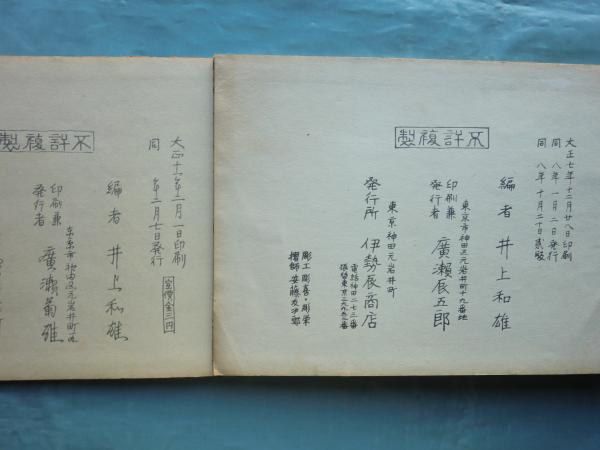 不許複製
大正七年十二月廿八日印刷
同 八年一月二日発行
同 八年十月二十日貮版
編者 井上和雄
東京市神田区元岩井町十九番地
印刷兼
発行者 廣瀬辰五郎
東京神田元岩井町
発行所 伊勢辰商店
電話神田二七三番
彫工 彫喜・彫栄
摺師 安藤
不許複製
大正十一年二月一日印刷
同 年二月七日発行
定價金二円
編者 井上和雄
東京市神田区元岩井町
印刷兼
発行者 廣瀬菊雄